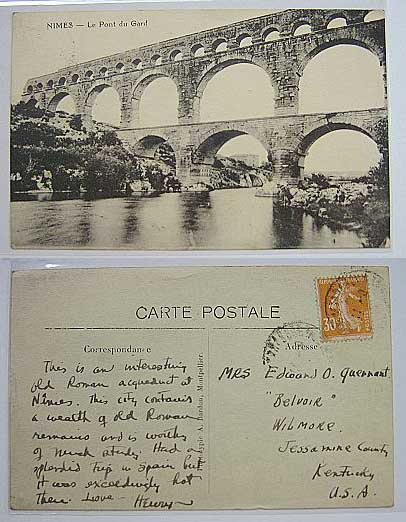 NIMES — Le Pont du Gard
CARTE POSTALE
Correspondance
Adresse
This is an interesting
old Roman aqueduct at
Nîmes. This city contains
a wealth of old Roman
remains and is worthy
of much study. Had a
splendid trip in Spain but
it was exceedingly hot
there. Love — Henry
MRS Edward O. Guerrant
"Belvoir"
WILMORE.
Jessamine County
Kentucky
U.S.A.
30